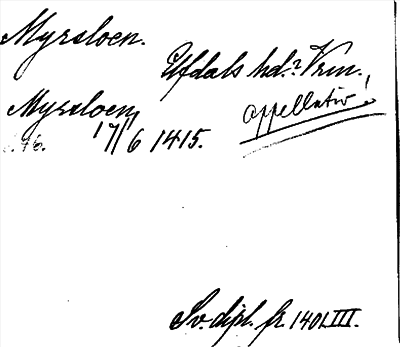 Myrsloen.
Elfdals hd.? Vrm.
appellativ!
Myrsloen
s. 96. 17/6 1415.
Sv. dipl. fr. 1401 III.